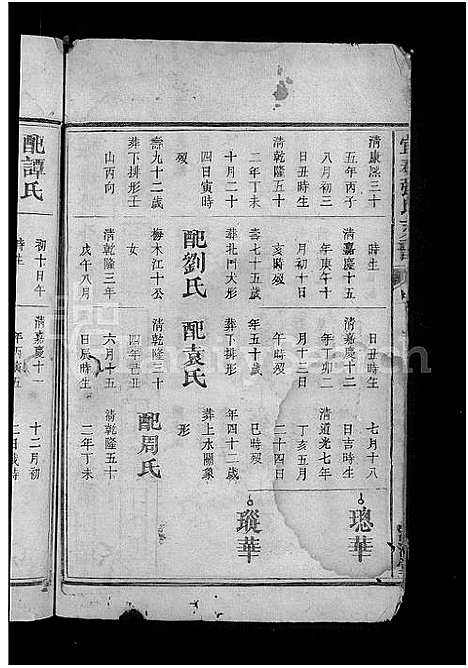 清康熙三十
五年丙子
八月初三
日丑時生
清乾隆五十
二年丁未
十月二十
四日寅時
歿
壽九十二歲
葬下排形壬
山丙向
時生
清嘉慶十五
年庚午十
月初十日
亥時歿
年七十五歲
葬北門大形
配劉氏
梅木江十公
女
清乾隆三年
戊午八月
日丑時生
清嘉慶十二
年丁卯二
月十三日
午時歿
年五十
葬下排形
配袁氏
清乾隆三十
四年己丑
六月十五
日辰時生
七月十八
日吉時生
清道光七年
丁亥五月
二十四日
巳時歿
年四十二歲
葬上水關象
形
配周氏
清乾隆五十
二年丁未
璁華
瑽華
配譚氏
初十日午
時生
清嘉慶十一
年丙寅五
十二月初
二日戌時
FamilySearch